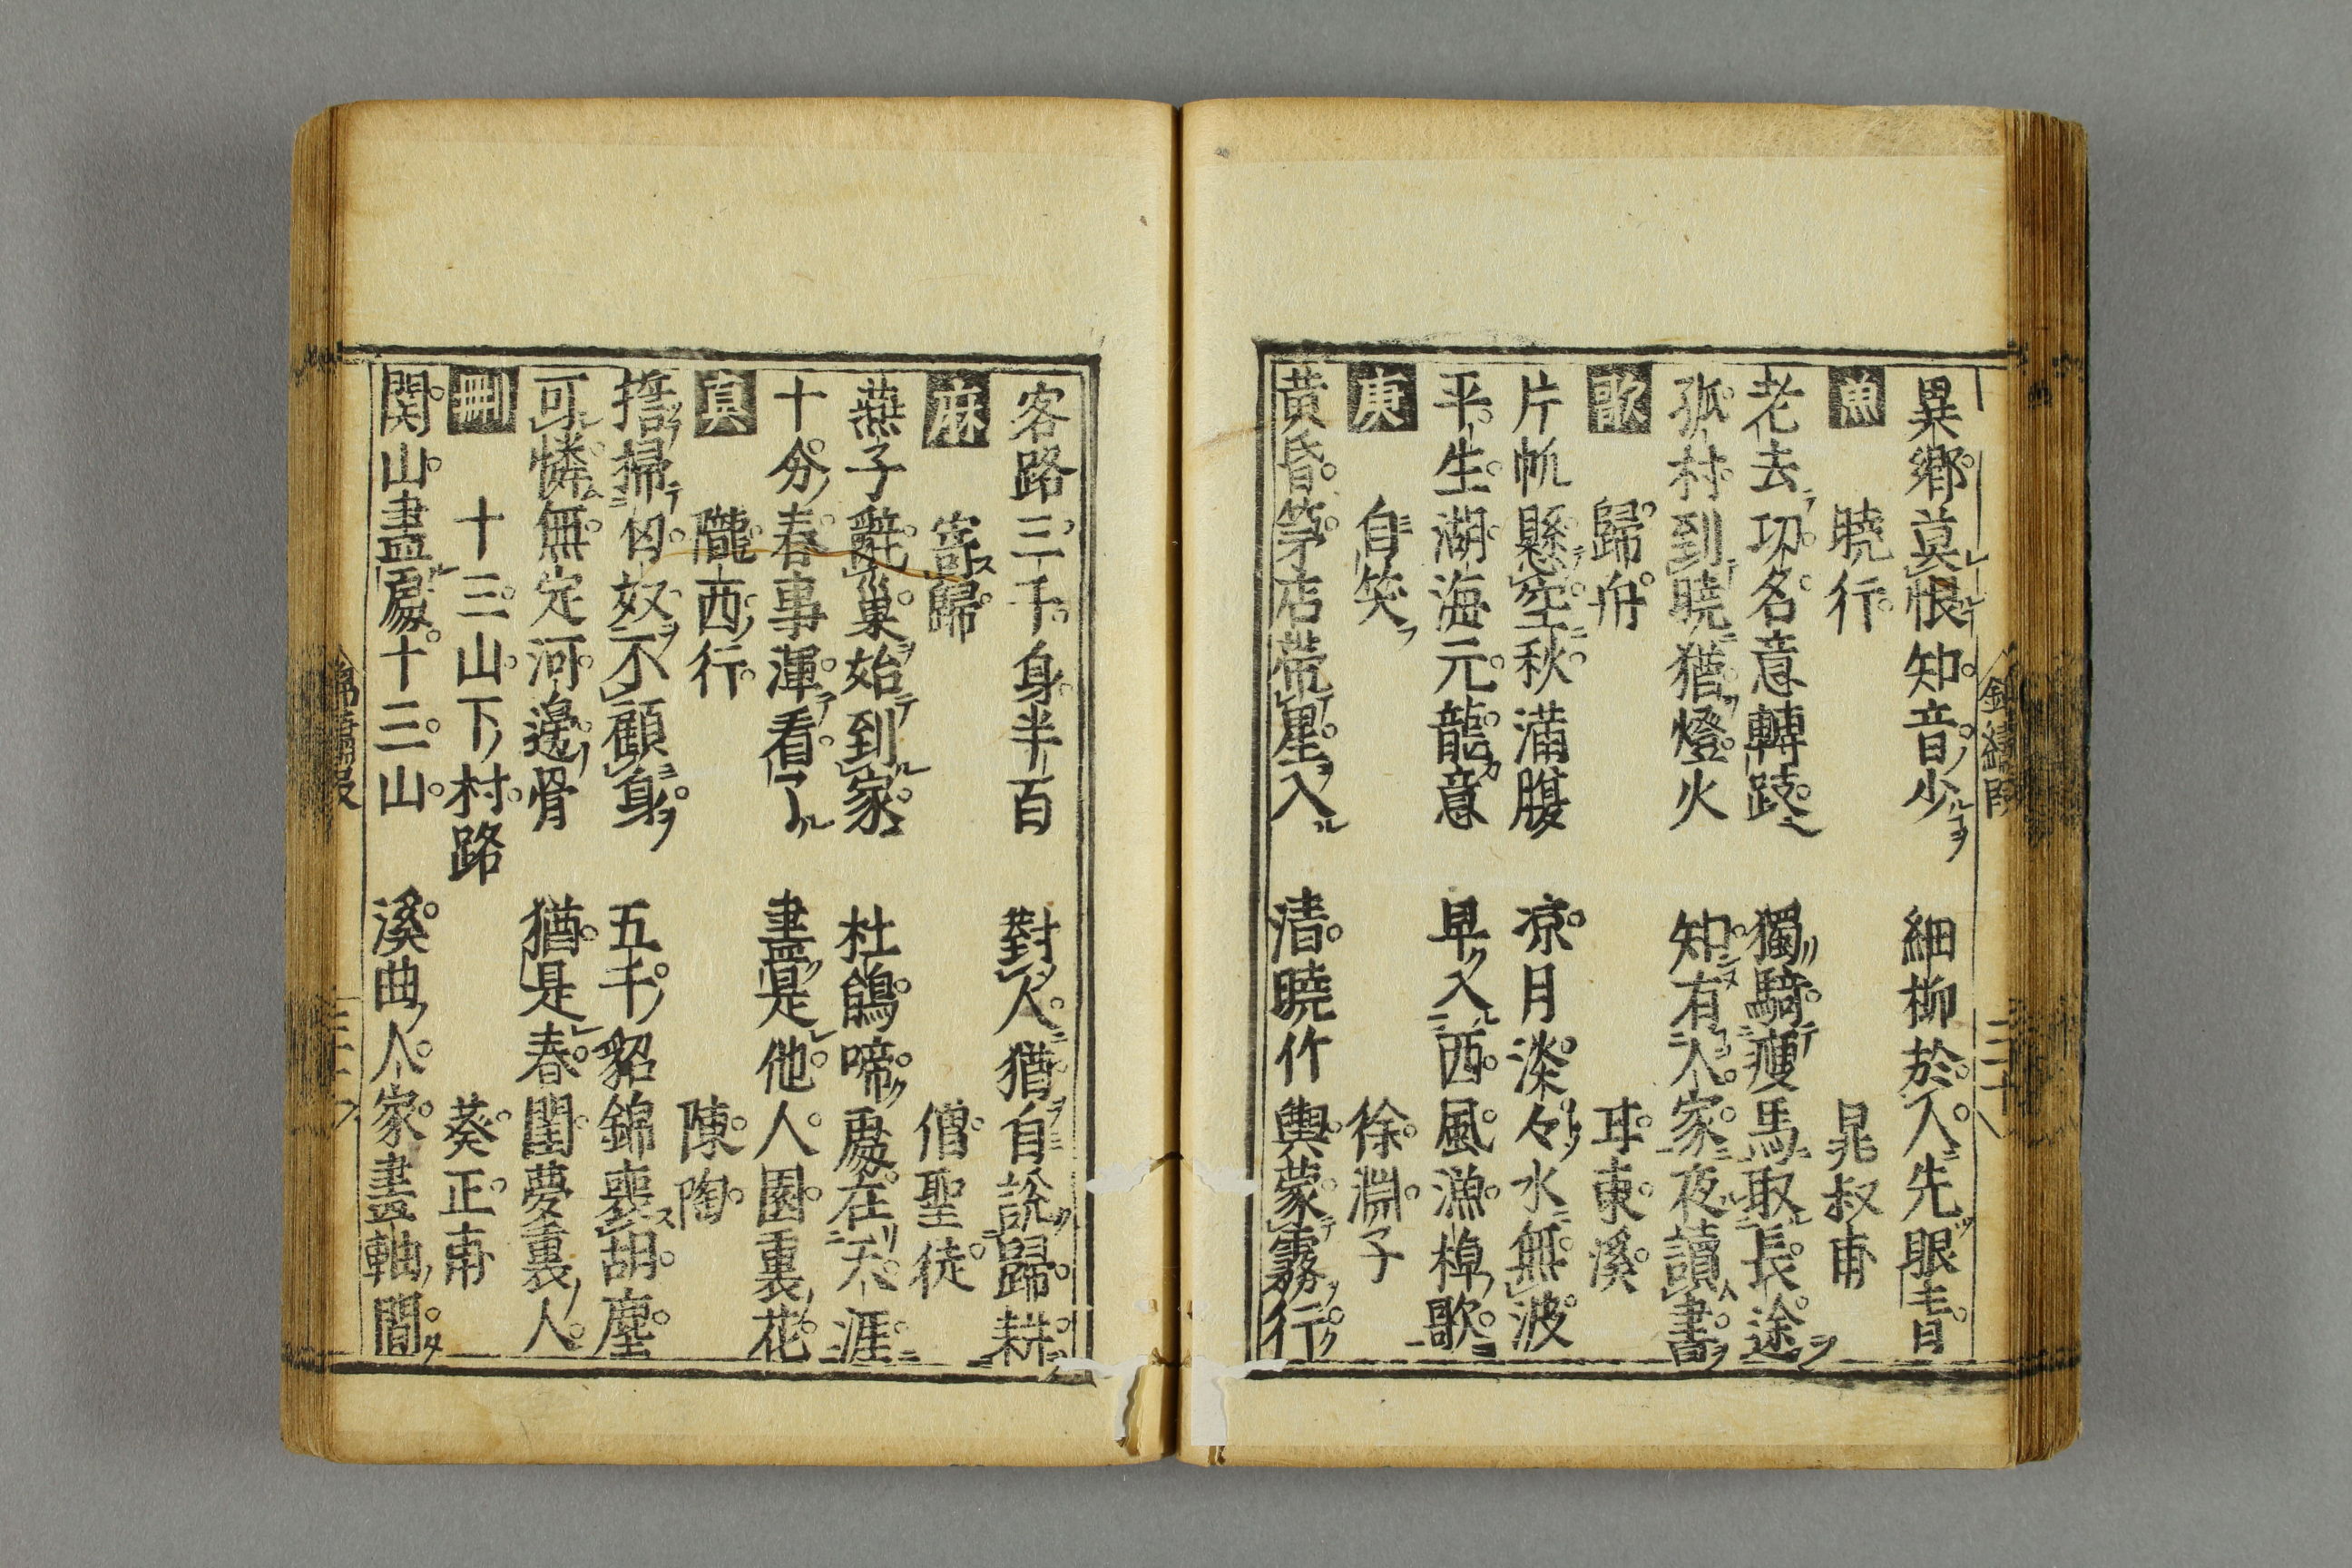 異鄉莫恨知音少 細柳於人先眼青
魚 曉行 晁叔甫
老去功名意轉踈 獨騎瘦馬取長途
孤村到曉猶燈火 知有人家夜讀書
歌 歸舟 耳東溪
片帆懸空秋滿腹 凉月淡々水無波
平生湖海元龍意 早入西風漁棹歌
庚 自笑 徐淵子
黃昏笌店帶星入 清曉竹輿蒙霧行
客路三千身半百 對人猶自說歸耕
麻 寄歸 僧聖徒
燕子辭巢始到家 杜鵑啼處在天涯
十分春事渾看了 盡是他人園裏花
真 隴西行 陳陶
誓掃匈奴不顧身 五千貂錦喪胡塵
可憐無定河邊骨 猶是春閨夢裏人
刪 十三山下村路 葵正甫
関山盡處十三山 溪曲人家畫軸間